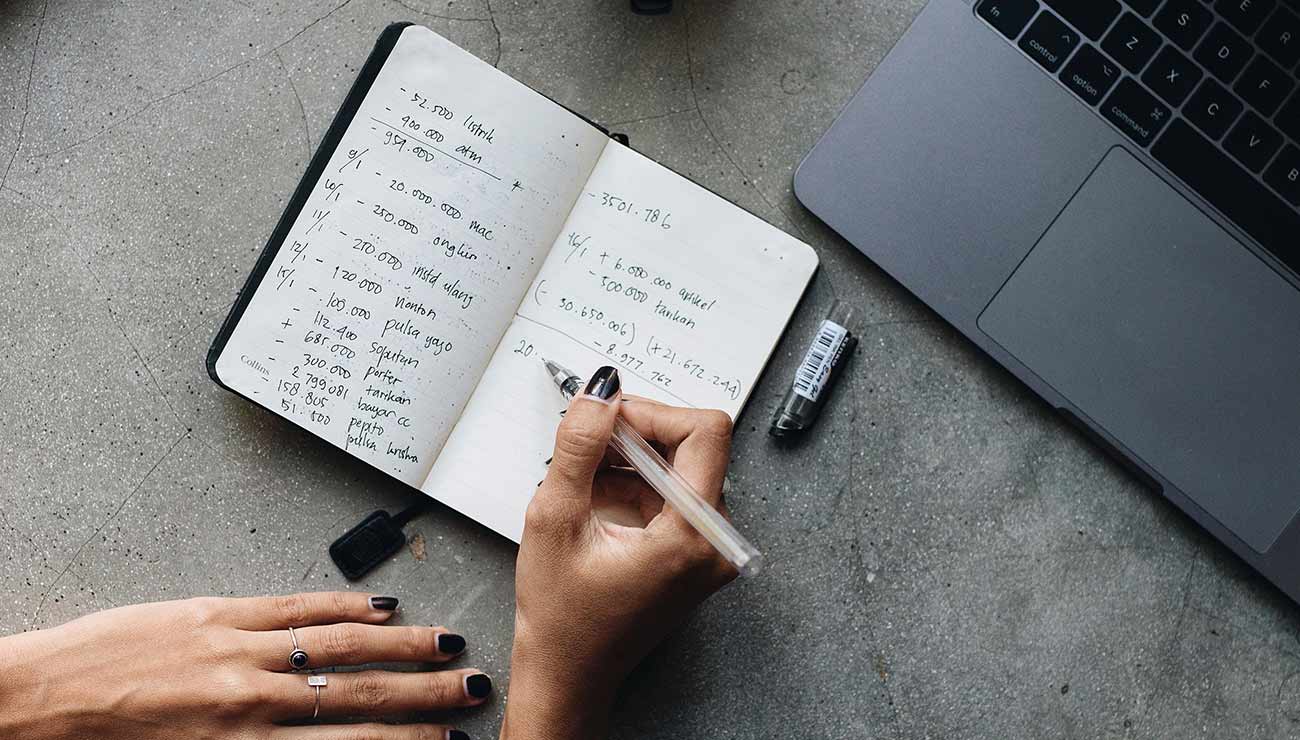 - 52.500 listrik
- 400.000 atm
- 959.000 *
9/1 - 20.000.000 mac
10/1 - 250.000 ongkir
11/1 - 210.000 instd ulang
12/1 - 120.000 nonton
15/1 - 100.000 pulsa yayo
- 112.400 soputan
+ 685.000 porter
- 300.000 tarikan
- 2.799.081 bayar cc
- 158.805 pepito
- 51.500 pulsa krisna
Collins
- 3501.786
16/1 + 6.000.000 artikel
- 300.000 tarikan
(- 30.650.006) (+21.672.244)
- 8.977.762
20.
fn
control
option
command
Z
X
C
V
B
S
D
F
E
R